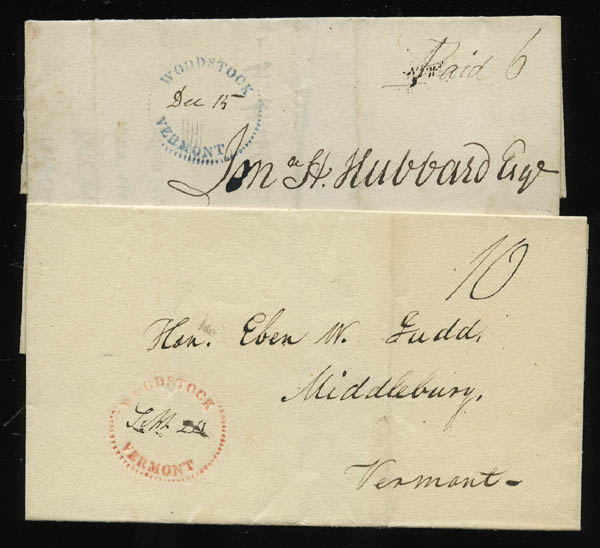 WOODSTOCK
Dec 15
VERMONT
Paid 6
Jonª H. Hubbard Esqr
10
Hon. Eben W. Judd,
Middlebury,
WOODSTOCK
Sept 20
VERMONT
Vermont-